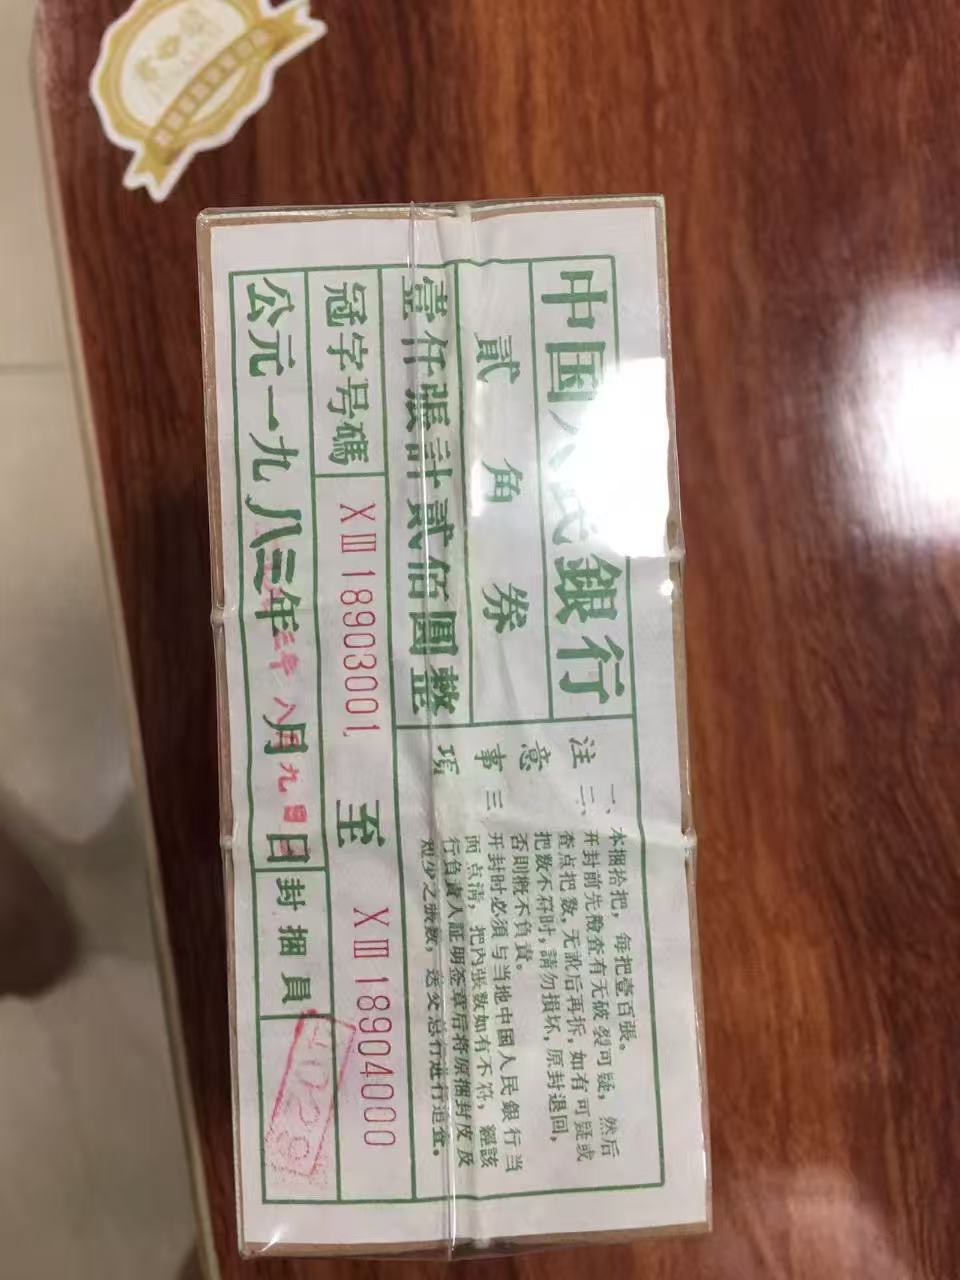 中国人民銀行
貳角券
壹仟張計貳佰圓整
冠字号碼 XⅢ 18903001 至 XⅢ 18904000
公元一九八三年八月九日 封捆員
注意事項
一、本捆拾把，每把壹百張。
二、开封前先檢査有无破裂可疑，然后
查点把数，无訛后再拆，如有可疑或
把数不符时，請勿損坏，原封退回，
否則概不負責。
三、开封时必須与当地中国人民銀行当
面点清，把内張数如有不符，經該
行負責人証明签章后将原捆封皮及
短少之張数，送交总行進行追查。